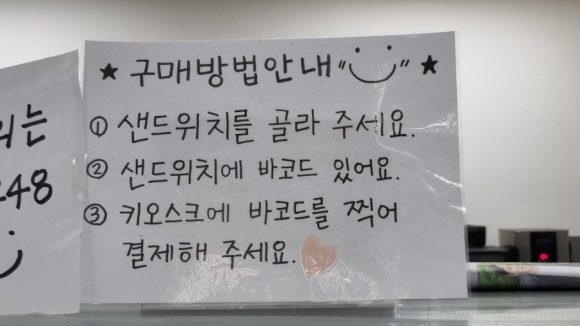 ★ 구매방법안내 ★
① 샌드위치를 골라 주세요.
② 샌드위치에 바코드 있어요.
③ 키오스크에 바코드를 찍어
결제해 주세요.
의는
48